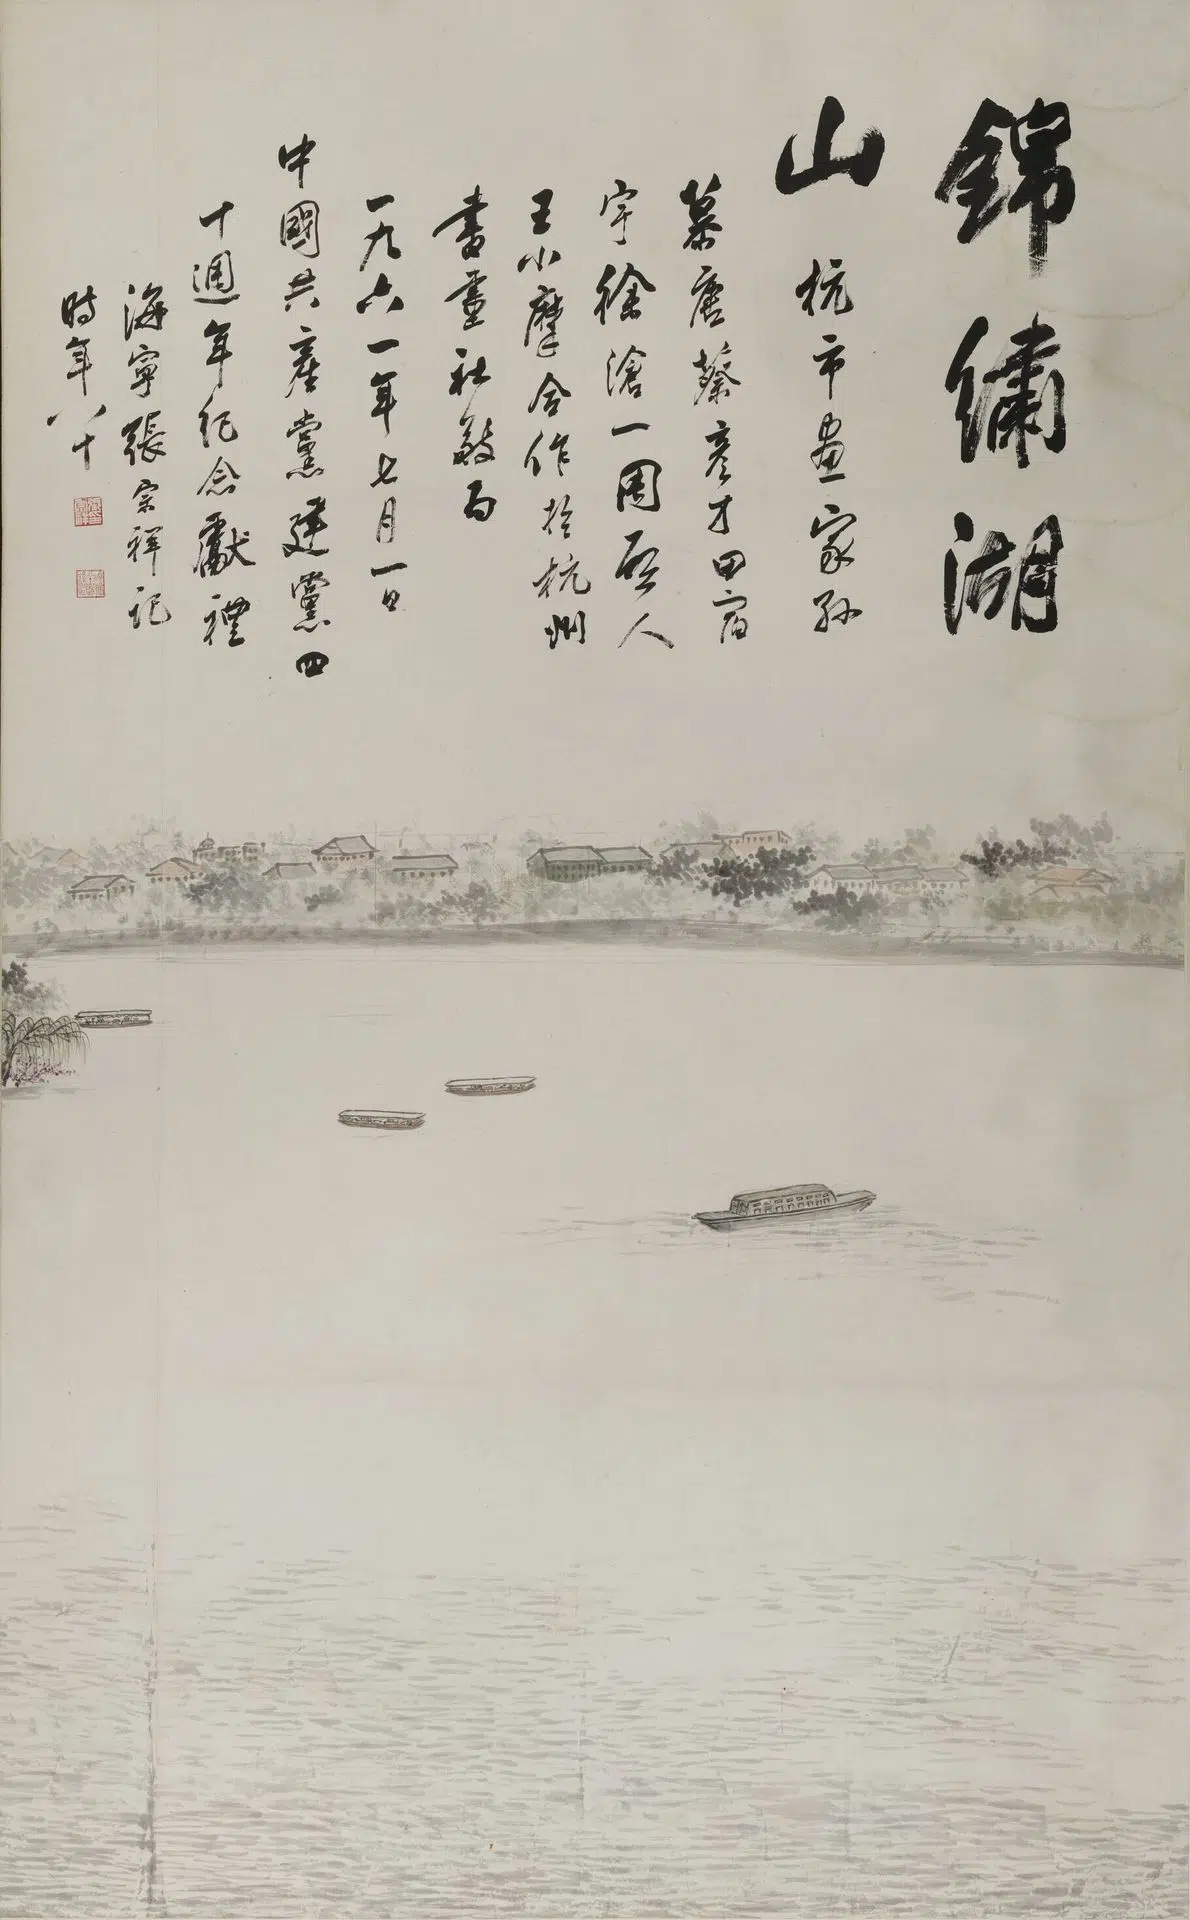 錦繡湖
山 杭市畫家孫
慕唐蔡彦才田宿
宇徐滄一周一人
王小摩合作於杭州
書畫社敬為
一九六一年七月一日
中國共產黨建黨四
十週年紀念獻禮
海寧張宗祥記
時年八十